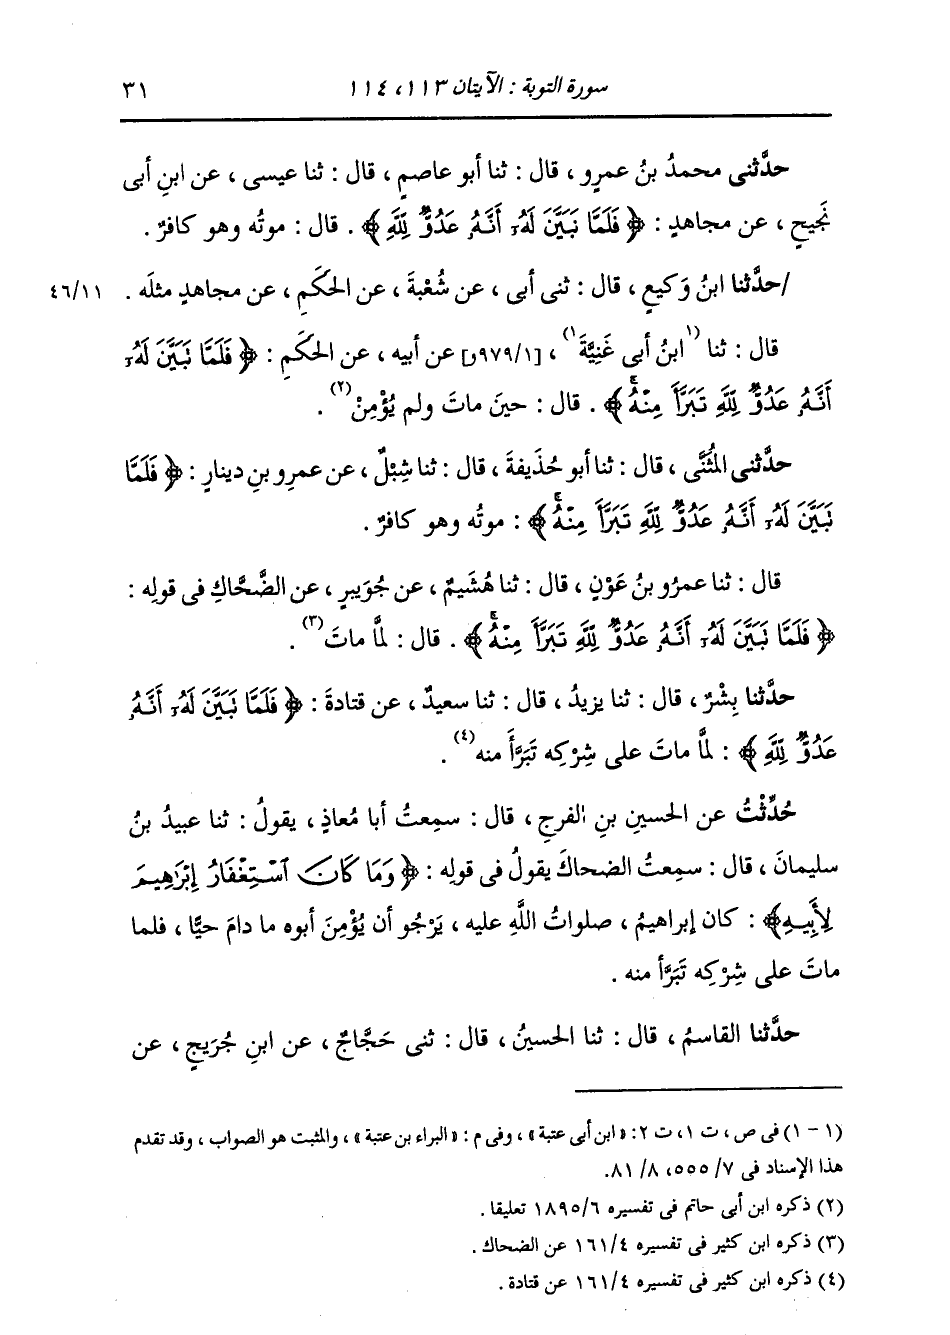 سورة التوبة : الآيتان ١١٣، ١١٤
٣١
حدَّثنى محمدُ بنُ عمرٍو ، قال : ثنا أبو عاصمٍ ، قال : ثنا عيسى ، عن ابنِ أبى
نَجيحٍ ، عن مجاهدٍ : ﴿ فَلَمَّا تَبَيَّنَ لَهُۥٓ أَنَّهُۥ عَدُوٌّ لِّلَّهِ ﴾ . قال : موتُه وهو كافرٌ .
/حدَّثنا ابنُ وَكيعٍ ، قال : ثنى أبى ، عن شُعْبةَ ، عن الحَكَمِ ، عن مجاهدٍ مثلَه . ٤٦/١١
قال : ثنا (١ابنُ أبى غَنِيَّةَ١) ، [٩٧٩/١و] عن أبيه ، عن الحَكَمِ : ﴿ فَلَمَّا تَبَيَّنَ لَهُۥٓ
أَنَّهُۥ عَدُوٌّ لِّلَّهِ تَبَرَّأَ مِنْهُۚ ﴾ . قال : حينَ ماتَ ولم يُؤْمِنْ (٢) .
حدَّثنى المُثَنَّى ، قال : ثنا أبو حُذَيفةَ ، قال : ثنا شِبْلٌ ، عن عمرِو بنِ دينارٍ : ﴿ فَلَمَّا
تَبَيَّنَ لَهُۥٓ أَنَّهُۥ عَدُوٌّ لِّلَّهِ تَبَرَّأَ مِنْهُۚ ﴾ : موتُه وهو كافرٌ .
قال : ثنا عمرُو بنُ عَوْنٍ ، قال : ثنا هُشَيمٌ ، عن جُوَيبرٍ ، عن الضَّحَّاكِ فى قولِه :
﴿ فَلَمَّا تَبَيَّنَ لَهُۥٓ أَنَّهُۥ عَدُوٌّ لِّلَّهِ تَبَرَّأَ مِنْهُۚ ﴾ . قال : لمَّا ماتَ (٣) .
حدَّثنا بِشْرٌ ، قال : ثنا يزيدُ ، قال : ثنا سعيدٌ ، عن قتادةَ : ﴿ فَلَمَّا تَبَيَّنَ لَهُۥٓ أَنَّهُۥ
عَدُوٌّ لِّلَّهِ ﴾ : لمَّا ماتَ على شِرْكِه تَبَرَّأَ منه (٤) .
حُدِّثْتُ عن الحسينِ بنِ الفرجِ ، قال : سمِعتُ أبا مُعاذٍ ، يقولُ : ثنا عبيدُ بنُ
سليمانَ ، قال : سمِعتُ الضحاكَ يقولُ فى قولِه : ﴿ وَمَا كَانَ ٱسْتِغْفَارُ إِبْرَٰهِيمَ
لِأَبِيهِ ﴾ : كان إبراهيمُ ، صلواتُ اللَّهِ عليه ، يَرْجُو أن يُؤْمِنَ أبوه ما دامَ حيًّا ، فلما
ماتَ على شِرْكِه تَبَرَّأ منه .
حدَّثنا القاسمُ ، قال : ثنا الحسينُ ، قال : ثنى حَجَّاجٌ ، عن ابنِ جُرَيجٍ ، عن
(١ - ١) فى ص ، ت ١، ت ٢: « ابن أبى عتبة » ، وفى م : « البراء بن عتبة » ، والمثبت هو الصواب ، وقد تقدم
هذا الإسناد فى ٧/ ٥٥٥، ٨/ ٨١.
(٢) ذكره ابن أبى حاتم فى تفسيره ١٨٩٥/٦ تعليقا .
(٣) ذكره ابن كثير فى تفسيره ١٦١/٤ عن الضحاك .
(٤) ذكره ابن كثير فى تفسيره ١٦١/٤ عن قتادة .